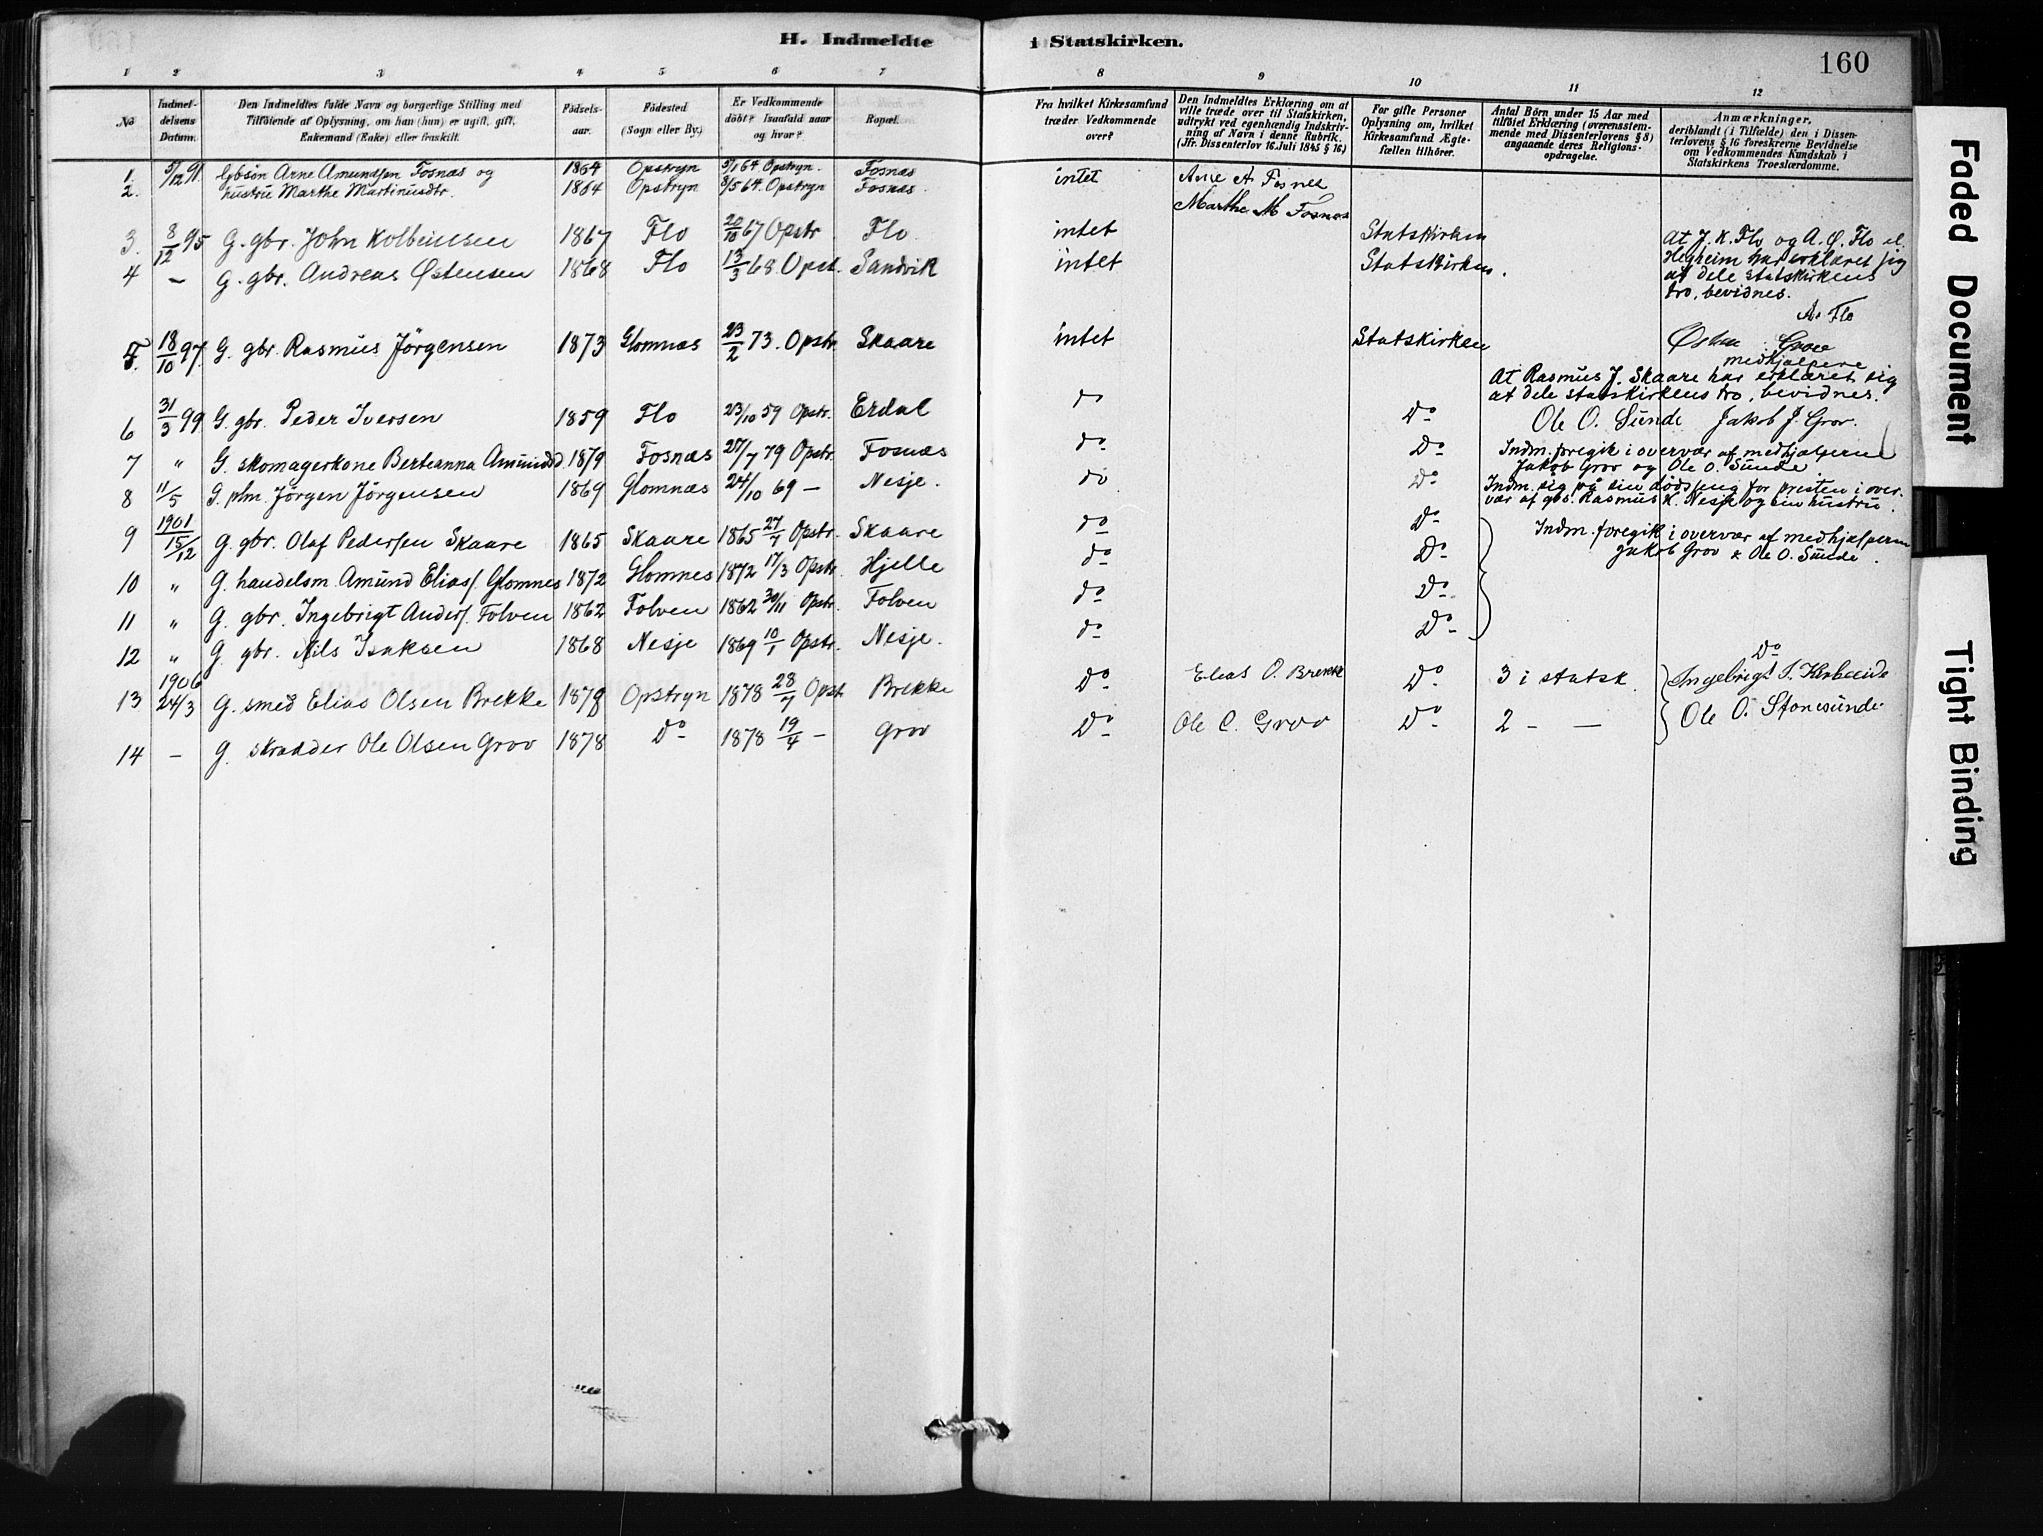 H. Indmeldte i Statskirken.
160
1 2 3 4 5 6 7 8 9 10 11 12
No
Indmel-
delsens
Datum.
Den Indmeldtes fulde Navn og borgerlige Stilling med
Tilföiende af Oplysning, om han (hun) er ugift, gift,
Enkemand (Enke) eller fraskilt.
Födsels-
aar.
Födested
(Sogn eller By.)
Er Vedkommende
döbt? Isaafald naar
og hvor?
Bopæl.
Fra hvilket Kirkesamfund
træder Vedkommende
over?
Den Indmeldtes Erklæring om at
ville træde over til Statskirken,
udtrykt ved egenhændig Indskriv-
ning af Navn i denne Rubrik.
(Jfr. Dissenterlov 16. Juli 1845 § 16)
For gifte Personer
Oplysning om, hvilket
Kirkesamfund Ægte-
fællen tilhörer.
Antal Börn under 15 Aar med
tilföiet Erklæring (overensstem-
mende med Dissenterlovens § 8)
angaaende deres Religions-
opdragelse.
Anmærkninger,
deriblandt (i Tilfælde) den i Dissen-
terlovens § 16 foreskrevne Bevidnelse
om Vedkommendes Kundskab i
Statskirkens Troeslærdomme.
1. 5/12 91. Gbsön Arne Amundsen Fosnæs og 1864 Opstryn 5/1 64 Opstryn. Fosnæs intet Arne A. Fosnes
2. hustru Marthe Martinusdtr. 1864 Opstryn 8/5 64. Opstryn Fosnæs. Marthe M Fosnæs
3. 8/12 95 G. gbr. John Kolbeinsen 1867 Flo 20/10 67 Opstr Flo intet Statskirken
4 – G. gbr. Andreas Østensen 1868 Flo 13/3 68. Opst. Sandvik intet Statskirken.
At J. K. Flo og A. Ø. Flo el.
Hegreim har erklæret sig
at dele statskirkens
tro, bevidnes.
A. Flo
5. 18/10 97. G. gbr. Rasmus Jörgensen 1873 Glomnæs 23/2 73. Opstr Skaare intet Statskirken
Grov
medhjælpere
At Rasmus J. Skaare har erklæret sig
at dele statskirkens tro, bevidnes.
Ole O. Sunde Jakob J. Grov.
6 31/3 99 G. gbr. Peder Iversen 1859 Flo 23/10 59 Opstr. Erdal do Do
7 " G. skomagerkone Berteanna Amundsd 1879 Fosnæs 27/7 79 Opstr. Fosnæs do Do
Indm. foregik i overvær af medhjælperne
Jakob Grov og Ole O. Sunde
8 11/5 G. plm. Jörgen Jörgensen 1869 Glomnæs 24/10 69 – Nesje. do Do
Indm. sig på sin dödsseng for presten i over-
vær af gbr. Rasmus K. Nesje og sin hustru.
9 1901 15/12 G. gbr. Olaf Pedersen Skaare 1865 Skaare 1865 27/7 Opstr. Skaare do Do
Indm. foregik i overvær af medhjelperne
Jakob Grov & Ole O. Sunde.
10 " G. handelsm. Amund Elias. Glomnes 1872 Glomnes 1872 17/3 Opstr. Hjelle do Do
11 " G. gbr. Ingebrigt Anders. Folven 1862 Folven 1862 30/11 Opstr. Folven do Do
12 " G. gbr. Nils Isaksen 1868 Nesje 1869 10/1 Opstr. Nesje. do Do
Do
13 1906 24/3 G. smed Elias Olsen Brekke 1878 Opstryn 1878 28/7 Opst Brekke Do Elias O. Brekke Do 3 i statsk.
14 – G. skrædder Ole Olsen Grov 1878 Do 1878 19/4 – Grov Do Ole O. Grov Do 2 – –
Ole O. Stonesunde
Faded Document
Tight Binding